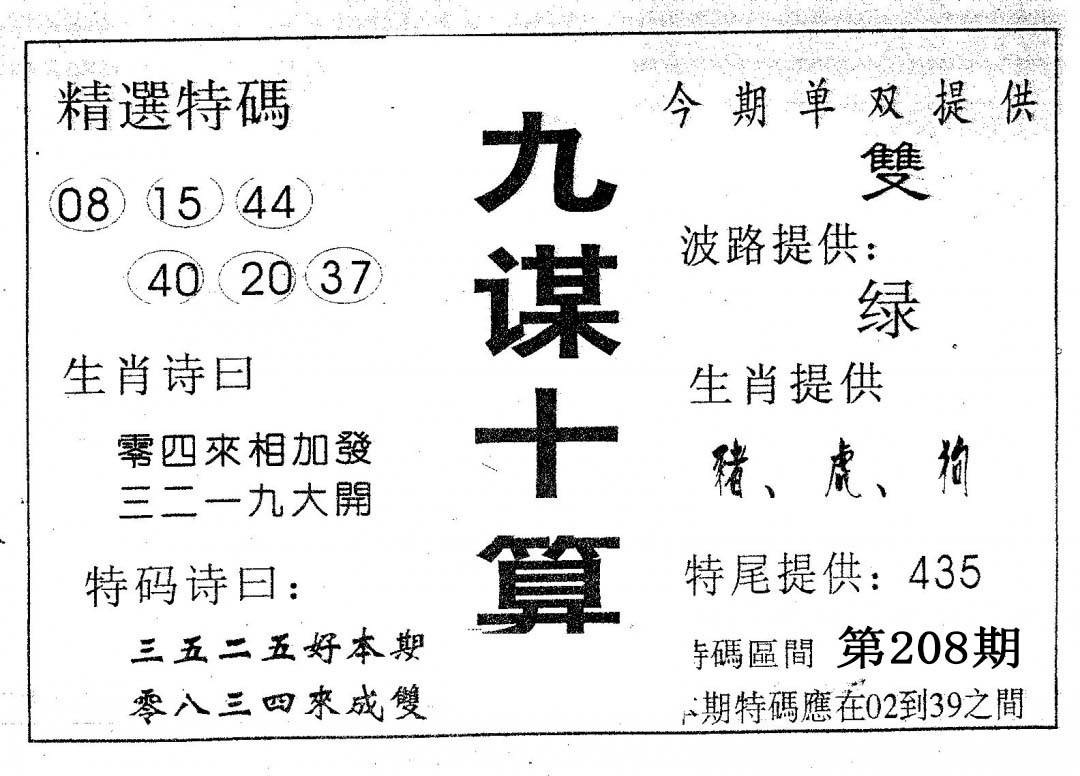 精選特碼
08 15 44
40 20 37
生肖诗曰
零四來相加發
三二一九大開
特码诗曰：
三五二五好本期
零八三四來成雙
九谋十算
今期单双提供
雙
波路提供：
绿
生肖提供
豬、虎、狗
特尾提供：435
特碼區間 第208期
本期特碼應在02到39之間